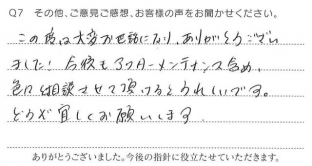 Q7 その他、ご意見ご感想、お客様の声をお聞かせください。
この度は大変お世話になり、ありがとうござい
ました! 今後もアフターメンテナンス含め、
色々相談させて頂けるとうれしいです。
どうぞ宜しくお願いします
ありがとうございました。今後の指針に役立たせていただきます。